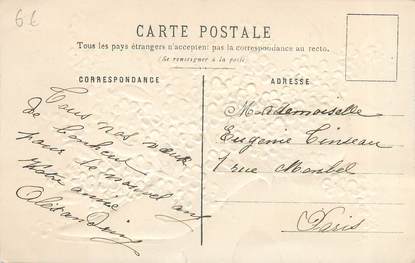 6€
CARTE POSTALE
Tous les pays étrangers n'acceptent pas la correspondance au recto.
(Se renseigner à la poste)
CORRESPONDANCE
ADRESSE
Tous nos vœux
de bonheur
pour le nouvel an
Votre amie
Alexandrine
Mademoiselle
Eugénie Tinseau
7 rue
Paris